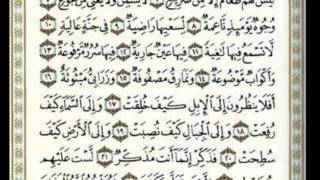 لَّيْسَ لَهُمْ طَعَامٌ إِلَّا مِن ضَرِيعٍ ٦ لَّا يُسْمِنُ وَلَا يُغْنِي مِن جُوعٍ ٧
وُجُوهٌ يَوْمَئِذٍ نَّاعِمَةٌ ٨ لِّسَعْيِهَا رَاضِيَةٌ ٩ فِي جَنَّةٍ عَالِيَةٍ ١٠
لَّا تَسْمَعُ فِيهَا لَاغِيَةً ١١ فِيهَا عَيْنٌ جَارِيَةٌ ١٢ فِيهَا سُرُرٌ مَّرْفُوعَةٌ ١٣
وَأَكْوَابٌ مَّوْضُوعَةٌ ١٤ وَنَمَارِقُ مَصْفُوفَةٌ ١٥ وَزَرَابِيُّ مَبْثُوثَةٌ ١٦
أَفَلَا يَنظُرُونَ إِلَى الْإِبِلِ كَيْفَ خُلِقَتْ ١٧ وَإِلَى السَّمَاءِ كَيْفَ
رُفِعَتْ ١٨ وَإِلَى الْجِبَالِ كَيْفَ نُصِبَتْ ١٩ وَإِلَى الْأَرْضِ كَيْفَ
سُطِحَتْ ٢٠ فَذَكِّرْ إِنَّمَا أَنتَ مُذَكِّرٌ ٢١ لَّسْتَ عَلَيْهِم